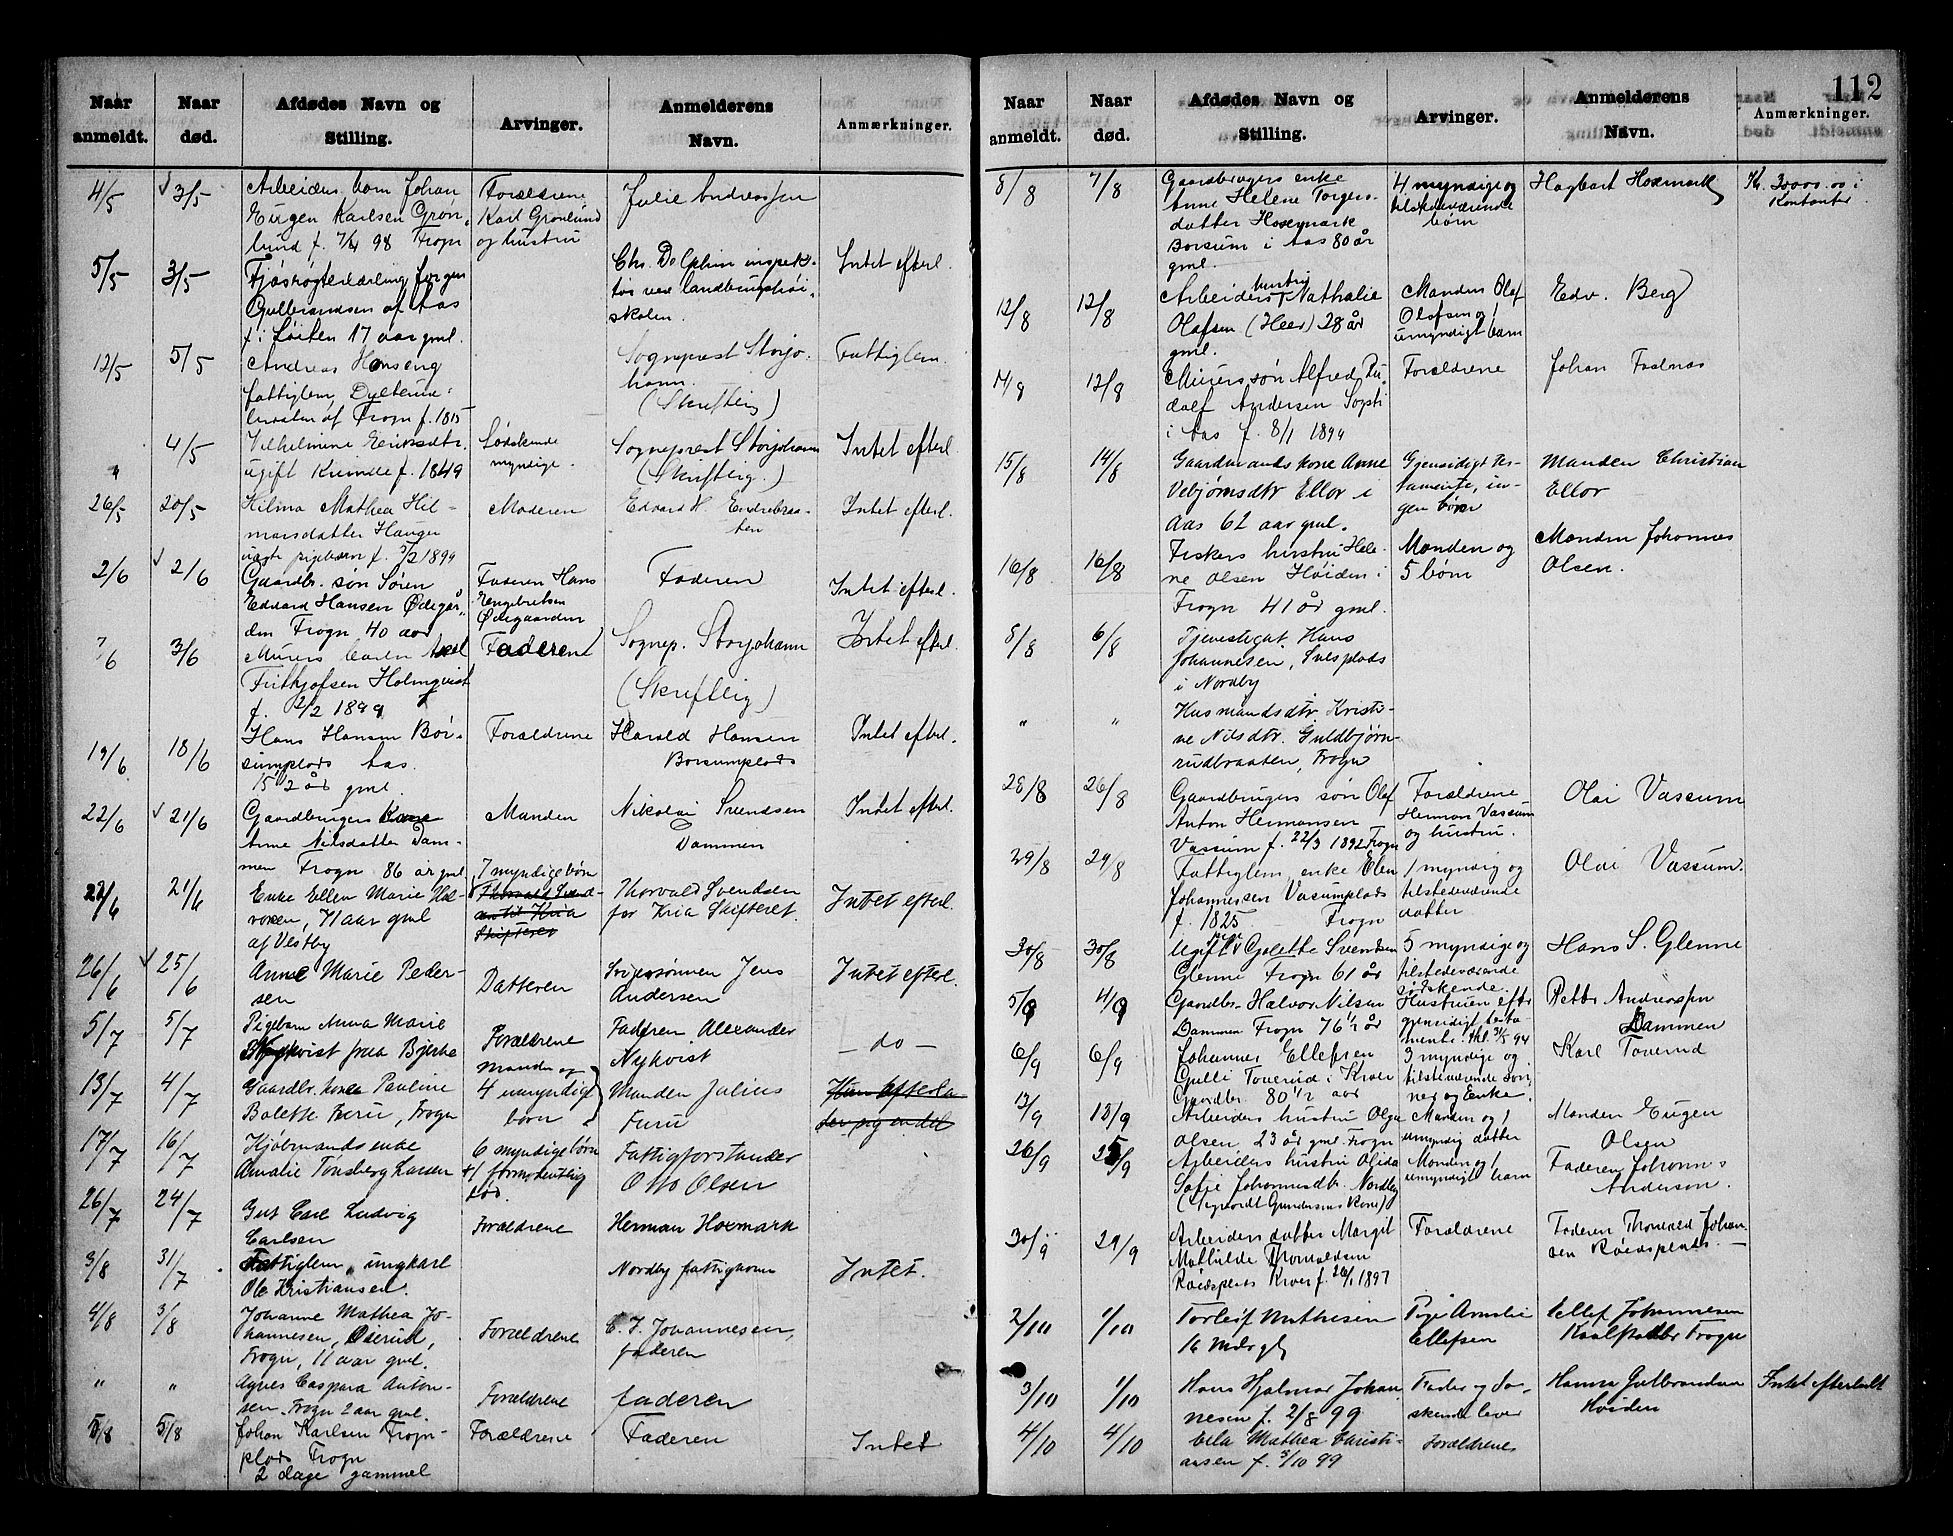 112
Naar anmeldt. Naar død. Afdødes Navn og Stilling. Arvinger. Anmelderens Navn. Anmærkninger.
4/5 3/5 Arbeiders barn Johan Forældrene Julie Andreassen
Eugen Karlsen Grøn- Karl Grønlund
lund f. 98 Frogn og hustru
5/5 3/5 Fjøsrøgterlærling Jørgen Chr. Delphin inspek- Intet efterl.
Gulbrandsen af Aas tør ved landbrugshøi-
f. i Løiten 17 aar gml. skolen.
12/5 5/5 Andreas Honseng Sogneprest Storjo- Fattiglem.
fattiglem, hann.
af Frogn f. 1815 (Skriftlig)
" 4/5 Vilhelmine Eriksdtr. Sødskende Sogneprest Storjohann Intet efterl.
ugift Kvinde f. 1849 myndige. (Skriftlig.)
26/5 20/5 Hilma Mathea Hil- Moderen Edvard H. Endrebraa- Intet efterl.
marsdatter Haugen ten
uægte pigebarn f. /2 1899
2/6 2/6 Gaardbr. søn Søren Faderen Hans Faderen Intet efterl.
Edvard Hansen Ødegår- Engebretsen
den Frogn 40 aar Ødegaarden
7/6 3/6 Murers barn Axel Forældrene Sognep. Storjohann Intet efterl.
Frithjofsen Holmqvist (Skriftlig)
f. 2/2 1899
19/6 18/6 Hans Hansen Bor- Forældrene Harald Hansen Intet efterl.
sumplads Aas. Borsumplads
15 1/2 år gml.
22/6 21/6 Gaardbrugers Kone Manden Nikolai Svendsen Intet efterl.
Anne Nilsdatter Dam- Dammen
men Frogn 86 år gml
22/6 21/6 Enke Ellen Marie Hal- 7 myndige børn Thorvald Svendsen Intet efterl.
vorsen, 71 aar gml Thorvald Svend- for Kria Skifteret.
af Vestby sen til Kria
Skifteret
26/6 25/6 Anne Marie Peder- Datteren Svigersønnen Jens Intet efterl.
sen Andersen
5/7 5/7 Pigebarn Anna Marie Forældrene Faderen Alexander — do —
Nykvist fra Bjerke Nykvist
13/7 4/7 Gaardbr. kone Pauline Manden og Manden Julius Hun efterla
Bolette Furu, Frogn 4 umyndige Furu der sig en del
børn
17/7 16/7 Kjøbmands enke 6 myndige børn Fattigforstander
Amalie Tønsberg Larsen + 1 formodentlig Otto Olsen
død.
26/7 24/7 Gut Carl Ludvig Forældrene Herman Hoxmark
Carlsen
3/8 31/7 Fattiglem, ungkarl Nordby fattighem Intet.
Ole Kristiansen.
4/8 3/8 Johanne Mathea Jo- Forældrene C. J. Johannesen,
hannesen, Oserud, faderen
Frogn, 11 aar gml.
" " Agnes Caspara Anton- Forældrene faderen
sen. Frogn 2 aar gml.
5/8 5/8 Johan Karlsen Frogn- Forældrene Faderen Intet
plads Frogn
2 dage gammel
Naar anmeldt. Naar død. Afdødes Navn og Stilling. Arvinger. Anmelderens Navn. Anmærkninger.
8/8 7/8 Gaardbrugers enke 4 myndige og Hagbart Hoxmark Kr. 3000.00 i
Anne Helene Torgers- tilstedeværende Kontanter
datter Hoxmark børn
Borsum i Aas 80 år
gml.
12/8 12/8 Arbeiders hustru Nathalie Manden Olaf Edv. Berg
Olafsen (Heer) 28 år Olafsen og 1
gml. umyndigt barn
14/8 12/8 Murers søn Alfred Ru- Forældrene Johan Faalnæs
dolf Andersen Sogsti
i Aas f. 8/1 1899
15/8 14/8 Gaardmands kone Anne Gjensidigt tes- Manden Christian
Vebjørnsdtr Ellor i tamente, in- Ellor
Aas 62 aar gml. gen børn
16/8 16/8 Fiskers hustru Hele- Manden og Manden Johannes
ne Olsen Høiden i 5 børn Olsen.
Frogn 41 år gml.
8/8 6/8 Tjenestegut Hans
Johannesen,
i Nordby
" " Husmandsdtr. Kristi-
ne Nilsdtr. Guldbjørn-
rudbraaten, Frogn
28/8 26/8 Gaardbrugers søn Olaf Forældrene Olai Vassum
Anton Hermansen Herman Vassum
Vassum f. 22/3 1892 Frogn og hustru.
29/8 29/8 Fattiglem enke Elen 1 myndig og Olai Vassum.
Johannessen Vasumplads tilstedeværende
f. 1825 — Frogn datter
30/8 30/8 Ugift pige Golette Svendsen 5 myndige og Hans S. Glenne
Glenne Frogn 61 år tilstedeværende
sødskende.
5/9 4/9 Gaardbr. Halvor Nilsen Hustruen efter Petter Andreassen
Dammen Frogn 76 1/2 år gjensidigt testa- Dammen
mente. thl. 31/5 94
6/9 6/9 Johannes Ellefsen 3 myndige og Karl Toverud
Gulli Toverud i Kroer tilstedeværende svig
Gaardbr. 80 1/2 aar ner og Enke.
13/9 13/9 Arbeiders hustru Olga Manden og 1 Manden Eugen
Olsen 23 år gml. Frogn umyndig datter Olsen
26/9 25/9 Arbeiders hustru Olida Manden og 1 Faderen Johannes
Sofie Johannesdtr. Nordby umyndigt barn Anderson.
(Sigvardt Gundersens Kone)
30/9 29/9 Arbeiders datter Margit Forældrene Faderen Thorvald Johan-
Mathilde Thorvaldsen sen Roedsplads.
Røedsplads Kroer f. 26/1 1897
2/10 1/10 Torleif Mathisen Pige Amalie Ellef Johannesen
16 Mdr. gl. Ellefsen Frogn
3/10 1/10 Hans Hjalmar Johan- Fader og sø- Hanna Gulbrandsen Intet efterladt
nesen f. 2/8 99 skende lever Høiden
4/10 4/10 Ella Mathea Christi- Forældrene
ansen f. 3/10 99